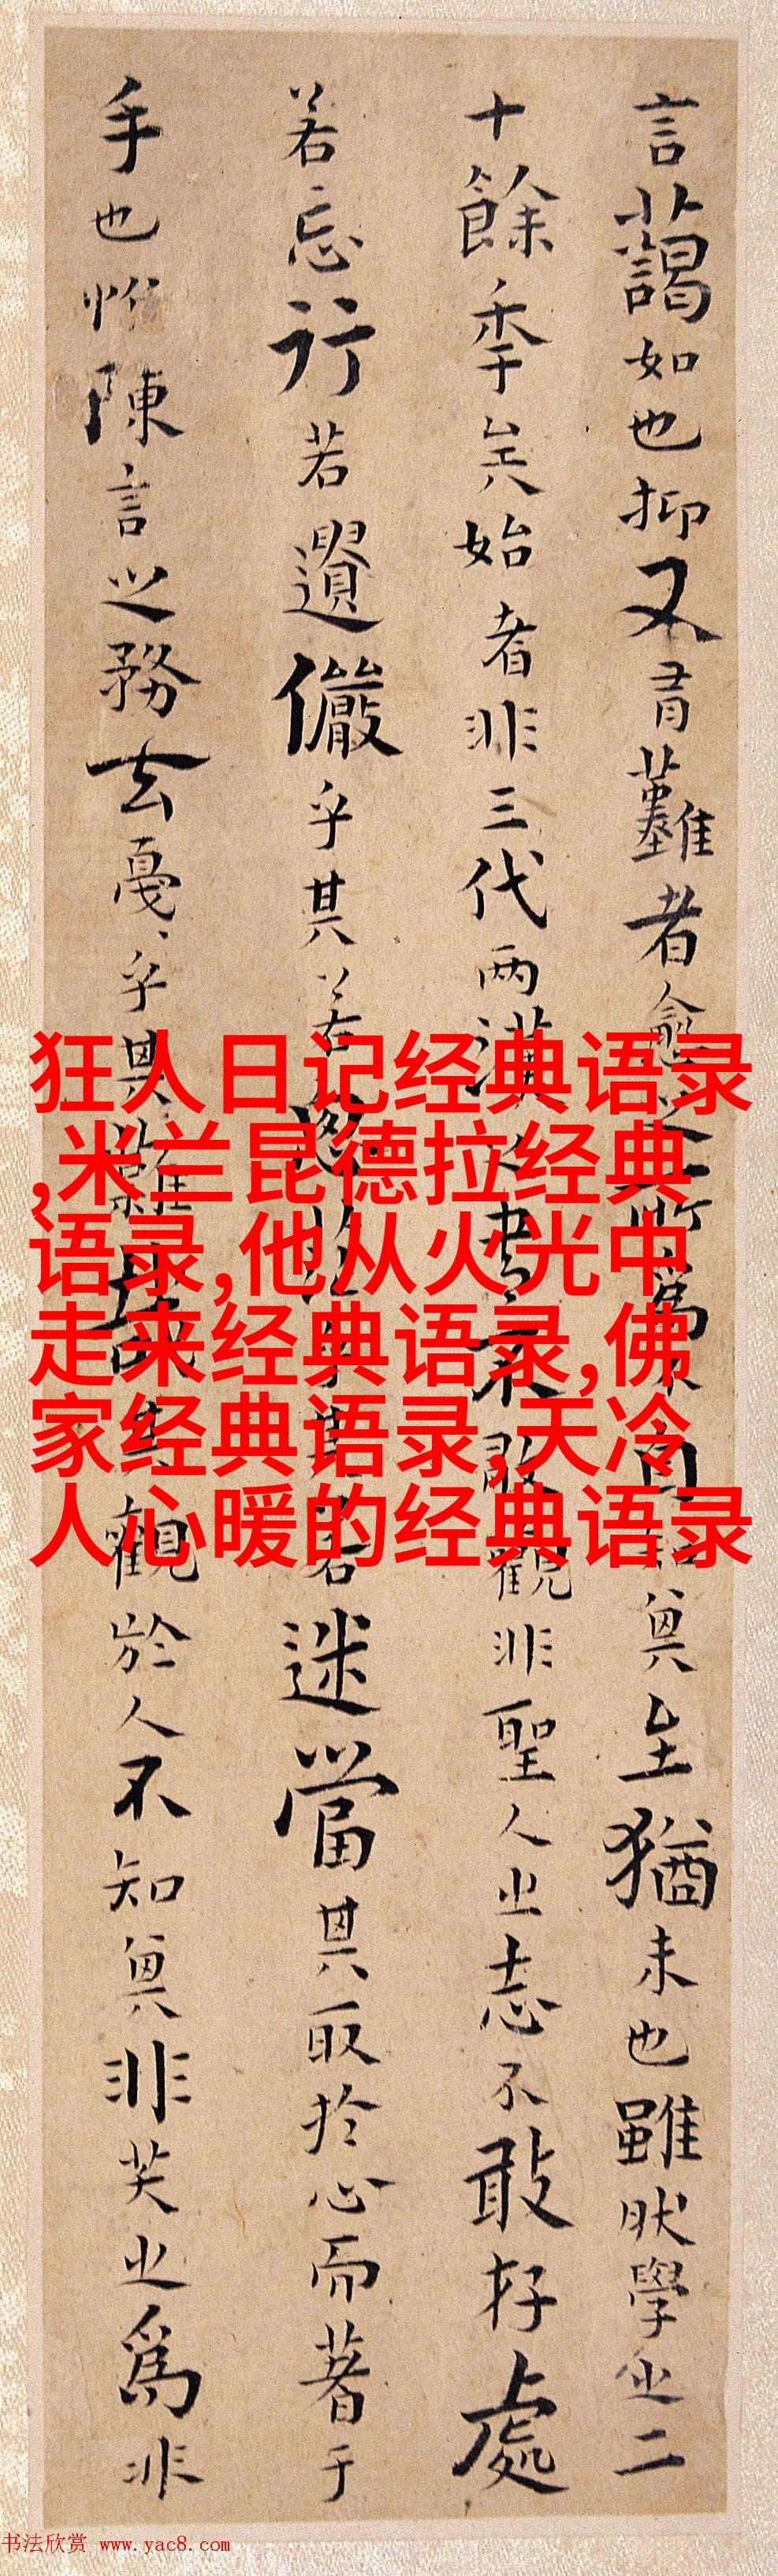 言藹如也抑又有難者愈之所為不自知其至猶未也雖然學之二
十餘年矣始者非三代兩漢之書不敢觀非聖人之志不敢存處
若忘行若遺儼乎其若思茫乎其若迷當其取於心而著于
手也惟陳言之務去戛戛乎其難哉其觀於人不知其非笑之為非
狂人日记经典语录
,米兰昆德拉经典
语录,他从火光中
走来经典语录,佛
家经典语录,天冷
人心暖的经典语录
书法欣赏 www.yac8.com